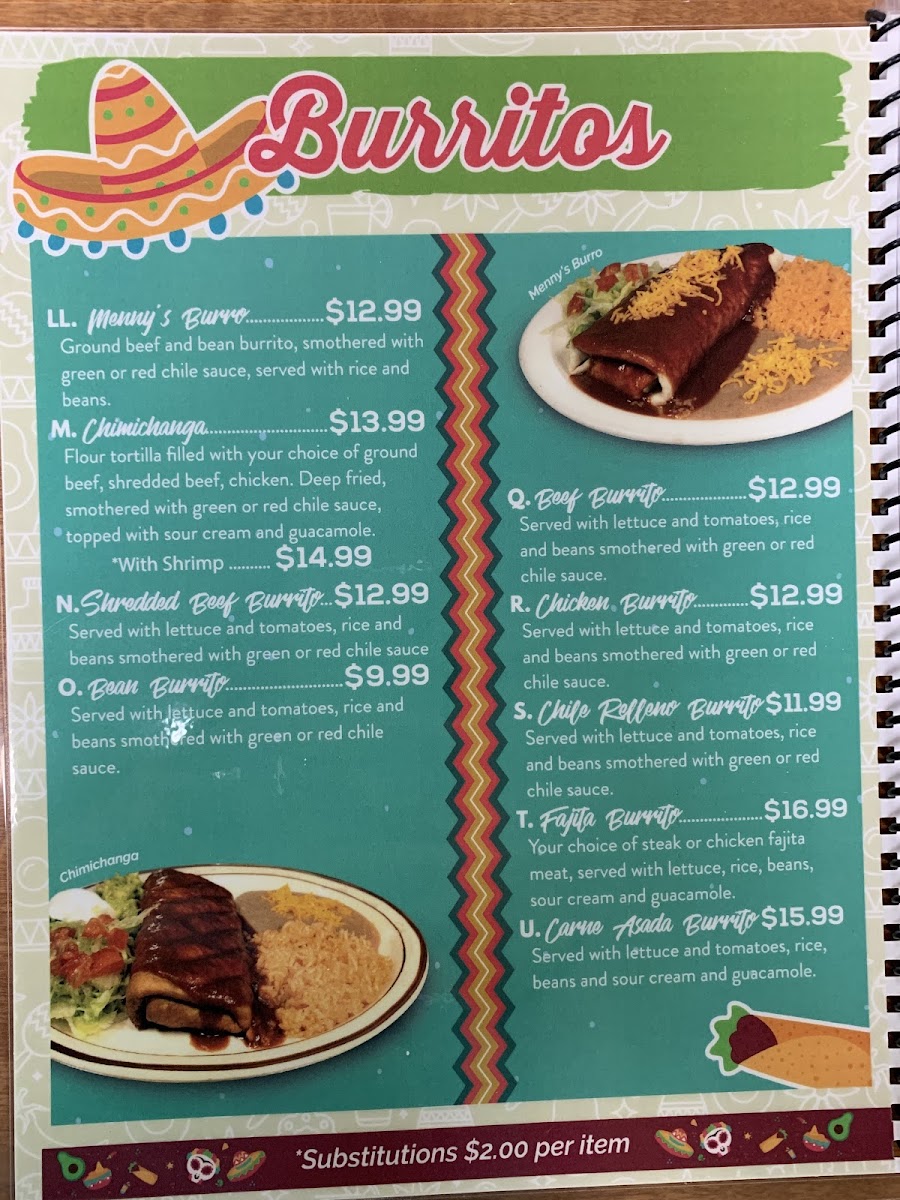 Burritos
LL. Menny's Burro.................$12.99
Ground beef and bean burrito, smothered with
green or red chile sauce, served with rice and
beans.
M. Chimichanga...........................$13.99
Flour tortilla filled with your choice of ground
beef, shredded beef, chicken. Deep fried,
smothered with green or red chile sauce,
topped with sour cream and guacamole.
*With Shrimp .......... $14.99
N. Shredded Beef Burrito...$12.99
Served with lettuce and tomatoes, rice and
beans smothered with green or red chile sauce
O. Bean Burrito..........................$9.99
Served with lettuce and tomatoes, rice and
beans smothered with green or red chile
sauce.
Chimichanga
Menny's Burro
Q. Beef Burrito...................$12.99
Served with lettuce and tomatoes, rice
and beans smothered with green or red
chile sauce.
R. Chicken Burrito............$12.99
Served with lettuce and tomatoes, rice
and beans smothered with green or red
chile sauce.
S. Chile Relleno Burrito $11.99
Served with lettuce and tomatoes, rice
and beans smothered with green or red
chile sauce.
T. Fajita Burrito...................$16.99
Your choice of steak or chicken fajita
meat, served with lettuce, rice, beans,
sour cream and guacamole.
U. Carne Asada Burrito $15.99
Served with lettuce and tomatoes, rice,
beans and sour cream and guacamole.
*Substitutions $2.00 per item